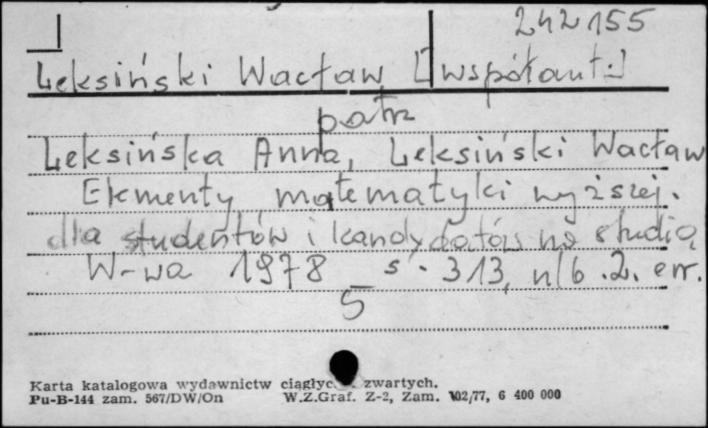 242155
Leksiński Wacław [współaut.]
patrz
Leksińska Anna, Leksiński Wacław
Elementy matematyki wyższej.
dla studentów i kandydatów na studia
W-wa 1978 s. 313, nlb. 2. err.
5
Karta katalogowa wydawnictw ciągłyc zwartych.
Pu-B-144 zam. 567/DW/On W.Z.Graf. Z-2, Zam. 102/77, 6 400 000